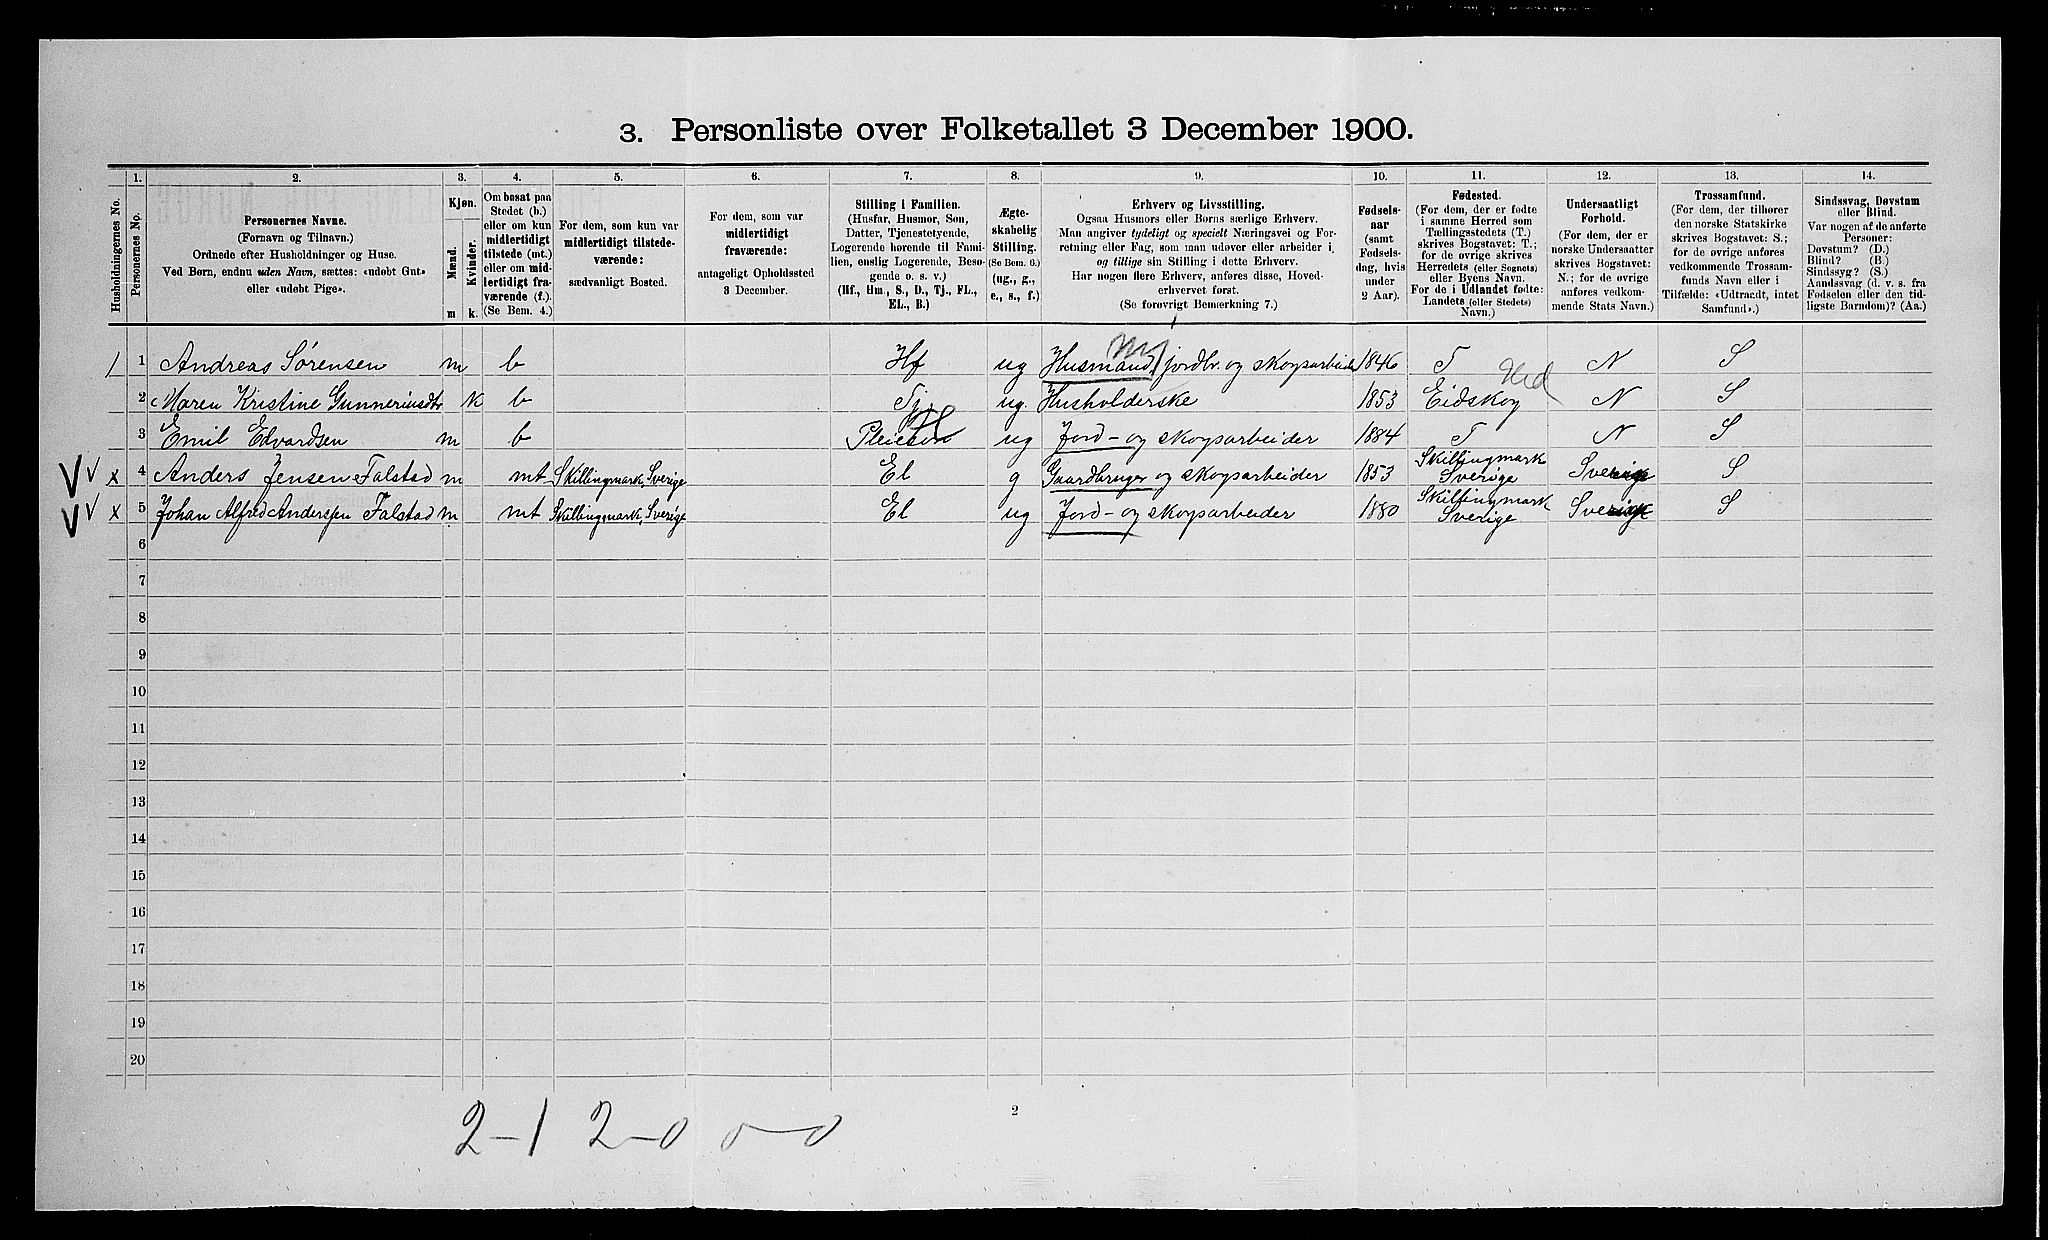 3. Personliste over Folketallet 3 December 1900.
Husholdningernes No.
1. Personernes No.
2. Personernes Navne.
(Fornavn og Tilnavn.)
Ordnede efter Husholdninger og Huse.
Ved Børn, endnu uden Navn, sættes: «udøbt Gut»
eller «udøbt Pige».
3. Kjøn.
Mænd. m
Kvinder. k.
4. Om bosat paa
Stedet (b.)
eller om kun
midlertidigt
tilstede (mt.)
eller om mid-
lertidigt fra-
værende (f.).
(Se Bem. 4.)
5. For dem, som kun var
midlertidigt tilstede-
værende:
sædvanligt Bosted.
6. For dem, som var
midlertidigt
fraværende:
antageligt Opholdssted
3 December.
7. Stilling i Familien.
(Husfar, Husmor, Søn,
Datter, Tjenestetyende,
Logerende hørende til Fami-
lien, enslig Logerende, Besø-
gende o. s. v.)
(Hf., Hm., S., D., Tj., FL.,
EL., B.)
8. Ægte-
skabelig
Stilling.
(Se Bem. 6.)
(ug., g.,
e., s., f.)
9. Erhverv og Livsstilling.
Ogsaa Husmors eller Børns særlige Erhverv.
Man angiver tydeligt og specielt Næringsvei og For-
retning eller Fag, som man udøver eller arbeider i,
og tillige sin Stilling i dette Erhverv.
Har nogen flere Erhverv, anføres disse, Hoved-
erhvervet først.
(Se forøvrigt Bemærkning 7.)
10. Fødsels-
aar
(samt
Fødsels-
dag, hvis
under
2 Aar).
11. Fødested.
(For dem, der er fødte
i samme Herred som
Tællingsstedets (T.)
skrives Bogstavet: T.;
for de øvrige skrives
Herredets (eller Sognets)
eller Byens Navn.
For de i Udlandet fødte:
Landets (eller Stedets)
Navn.)
12. Undersaatligt
Forhold.
(For dem, der er
norske Undersaatter
skrives Bogstavet:
N.; for de øvrige
anføres vedkom-
mende Stats Navn.)
13. Trossamfund.
(For dem, der tilhører
den norske Statskirke
skrives Bogstavet: S.;
for de øvrige anføres
vedkommende Trossam-
funds Navn eller i
Tilfælde: «Udtraadt, intet
Samfund».)
14. Sindssvag, Døvstum
eller Blind.
Var nogen af de anførte
Personer:
Døvstum? (D.)
Blind? (B.)
Sindssyg? (S.)
Aandssvag (d. v. s. fra
Fødselen eller den tid-
ligste Barndom)? (Aa.)
1 1 Andreas Sørensen m b Hf ug Husmand, jordbr. og skogsarbeider 1846 T N S
2 Maren Kristine Gunneriusdtr K b Tj. ug. Husholderske 1853 Eidskog N S
3 Emil Edvardsen m b Pleiesøn ug Jord- og skogsarbeider 1884 T N S
V v x 4 Anders Jensen Falstad m mt Skillingmark, Sverige El g Gaardbruger og skogsarbeider 1853 Skillingmark Sverige Sverige S
V v x 5 Johan Alfred Anderssen Falstad m mt Skillingmark, Sverige El ug Jord- og skogsarbeider 1880 Skillingmark Sverige Sverige S
6
7
8
9
10
11
12
13
14
15
16
17
18
19
20
2
2-1 2-0 0-0